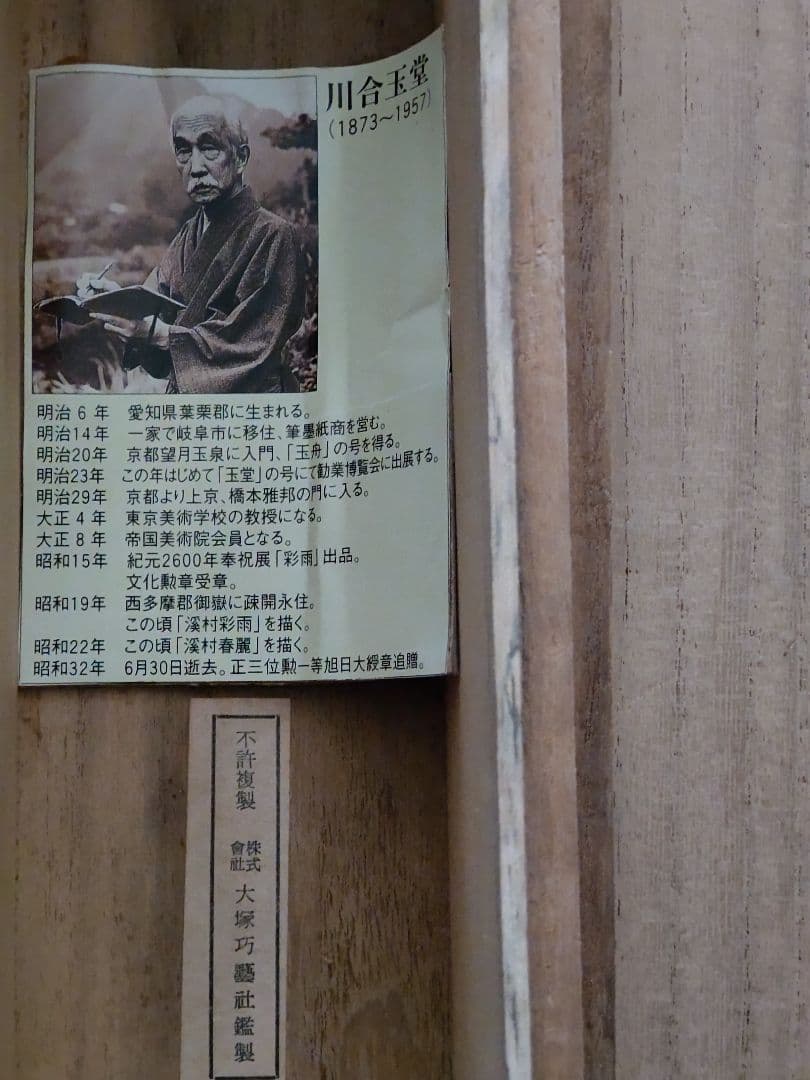 川合玉堂
(1873〜1957)
明治6年 愛知県葉栗郡に生まれる。
明治14年 一家で岐阜市に移住、筆墨紙商を営む。
明治20年 京都望月玉泉に入門、「玉舟」の号を得る。
明治23年 この年はじめて「玉堂」の号にて勧業博覧会に出展する。
明治29年 京都より上京、橋本雅邦の門に入る。
大正4年 東京美術学校の教授になる。
大正8年 帝国美術院会員となる。
昭和15年 紀元2600年奉祝展「彩雨」出品。
文化勲章受章。
昭和19年 西多摩郡御嶽に疎開永住。
この頃「溪村彩雨」を描く。
昭和22年 この頃「溪村春麗」を描く。
昭和32年 6月30日逝去。正三位勲一等旭日大綬章追贈。
不許複製
株式會社
大塚巧藝社鑑製